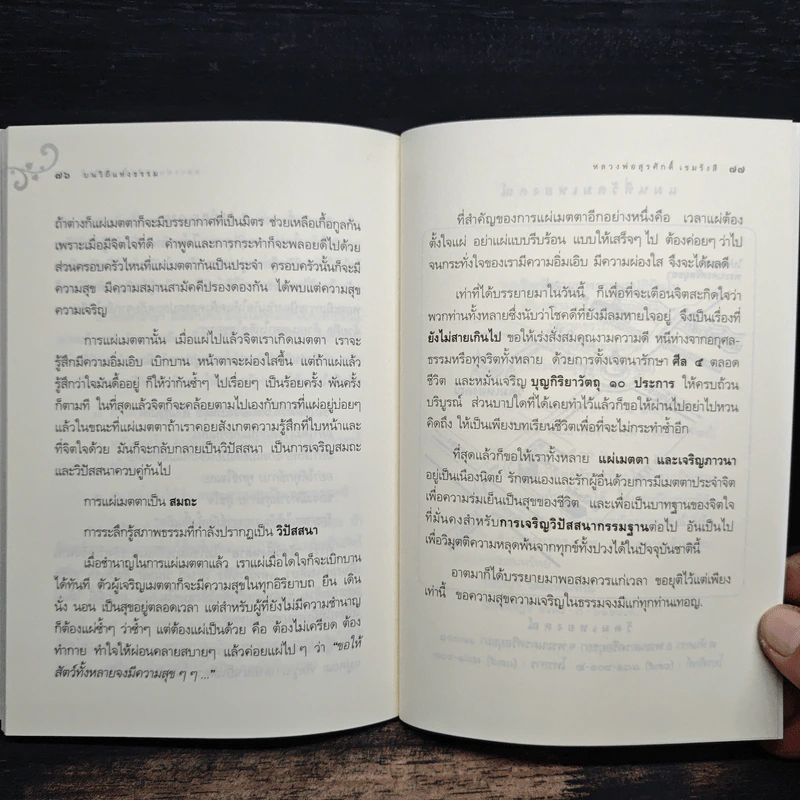 ๗๖ บนวิถีแห่งธรรม
ถ้าต่างก็แผ่เมตตาก็จะมีบรรยากาศที่เป็นมิตร ช่วยเหลือเกื้อกูลกัน
เพราะเมื่อมีจิตใจที่ดี คำพูดและการกระทำก็จะพลอยดีไปด้วย
ส่วนครอบครัวไหนที่แผ่เมตตากันเป็นประจำ ครอบครัวนั้นก็จะมี
ความสุข มีความสมานสามัคคีปรองดองกัน ได้พบแต่ความสุข
ความเจริญ
การแผ่เมตตานั้น เมื่อแผ่ไปแล้วจิตเราเกิดเมตตา เราจะ
รู้สึกมีความอิ่มเอิบ เบิกบาน หน้าตาจะผ่องใสขึ้น แต่ถ้าแผ่แล้ว
รู้สึกว่าใจมันดื้ออยู่ ก็ให้ว่ากันซ้ำๆ ไปเรื่อยๆ เป็นร้อยครั้ง พันครั้ง
ก็ตามที ในที่สุดแล้วจิตก็จะคล้อยตามไปเองกับการที่แผ่อยู่บ่อยๆ
แล้วในขณะที่แผ่เมตตาถ้าเราคอยสังเกตความรู้สึกที่ใบหน้าและ
ที่จิตใจด้วย มันก็จะกลับกลายเป็นวิปัสสนา เป็นการเจริญสมถะ
และวิปัสสนาควบคู่กันไป
การแผ่เมตตาเป็น สมถะ
การระลึกรู้สภาพธรรมที่กำลังปรากฏเป็น วิปัสสนา
เมื่อชำนาญในการแผ่เมตตาแล้ว เราแผ่เมื่อใดใจก็จะเบิกบาน
ได้ทันที ตัวผู้เจริญเมตตาก็จะมีความสุขในทุกอิริยาบถ ยืน เดิน
นั่ง นอน เป็นสุขอยู่ตลอดเวลา แต่สำหรับผู้ที่ยังไม่มีความชำนาญ
ก็ต้องแผ่ซ้ำๆ ว่าซ้ำๆ แต่ต้องแผ่เป็นด้วย คือ ต้องไม่เครียด ต้อง
ทำกาย ทำใจให้ผ่อนคลายสบายๆ แล้วค่อยแผ่ไปๆ ว่า "ขอให้
สัตว์ทั้งหลายจงมีความสุข ๆ ๆ ..."
หลวงพ่อสุรศักดิ์ เขมรังสี ๗๗
ที่สำคัญของการแผ่เมตตาอีกอย่างหนึ่งคือ เวลาแผ่ต้อง
ตั้งใจแผ่ อย่าแผ่แบบรีบร้อน แบบให้เสร็จๆ ไป ต้องค่อยๆ ว่าไป
จนกระทั่งใจของเรามีความอิ่มเอิบ มีความผ่องใส จึงจะได้ผลดี
เท่าที่ได้บรรยายมาในวันนี้ ก็เพื่อที่จะเตือนจิตสะกิดใจว่า
พวกท่านทั้งหลายซึ่งนับว่าโชคดีที่ยังมีลมหายใจอยู่ จึงเป็นเรื่องที่
ยังไม่สายเกินไป ขอให้เร่งสั่งสมคุณงามความดี หนีห่างจากอกุศล-
ธรรมหรือทุจริตทั้งหลาย ด้วยการตั้งเจตนารักษา ศีล ๕ ตลอด
ชีวิต และหมั่นเจริญ บุญกิริยาวัตถุ ๑๐ ประการ ให้ครบถ้วน
บริบูรณ์ ส่วนบาปใดที่ได้เคยทำไว้แล้วก็ขอให้ผ่านไปอย่าไปหวน
คิดถึง ให้เป็นเพียงบทเรียนชีวิตเพื่อที่จะไม่กระทำซ้ำอีก
ที่สุดแล้วก็ขอให้เราทั้งหลาย แผ่เมตตา และเจริญภาวนา
อยู่เป็นเนืองนิตย์ รักตนเองและรักผู้อื่นด้วยการมีเมตตาประจำจิต
เพื่อความร่มเย็นเป็นสุขของชีวิต และเพื่อเป็นบาทฐานของจิตใจ
ที่มั่นคงสำหรับการเจริญวิปัสสนากรรมฐานต่อไป อันเป็นไป
เพื่อวิมุตติความหลุดพ้นจากทุกข์ทั้งปวงได้ในปัจจุบันชาตินี้
อาตมาก็ได้บรรยายมาพอสมควรแก่เวลา ขอยุติไว้แต่เพียง
เท่านี้ ขอความสุขความเจริญในธรรมจงมีแก่ทุกท่านเทอญ.